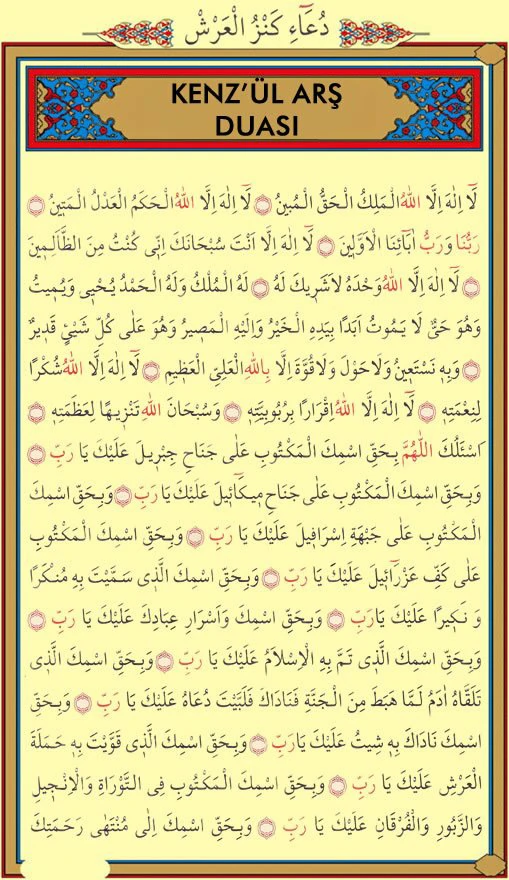 دُعَاءِ كَنْزُ الْعَرْشْ
KENZ’ÜL ARŞ
DUASI
لَٓا اِلٰهَ اِلَّا اللّٰهُ الْمَلِكُ الْحَقُّ الْمُبٖينُ ۞ لَٓا اِلٰهَ اِلَّا اللّٰهُ الْحَكَمُ الْعَدْلُ الْمَتٖينُ ۞
رَبُّنَا وَرَبُّ اٰبَائِنَا الْاَوَّلٖينَ ۞ لَٓا اِلٰهَ اِلَّا اَنْتَ سُبْحَانَكَ اِنّٖى كُنْتُ مِنَ الظَّالِمٖينَ
۞ لَٓا اِلٰهَ اِلَّا اللّٰهُ وَحْدَهُ لَاشَرٖيكَ لَهُ ۞ لَهُ الْمُلْكُ وَلَهُ الْحَمْدُ يُحْيٖى وَيُمٖيتُ
وَهُوَ حَىٌّ لَا يَمُوتُ اَبَدًا بِيَدِهِ الْخَيْرُ وَاِلَيْهِ الْمَصٖيرُ وَهُوَ عَلٰى كُلِّ شَيْئٍ قَدٖيرٌ
۞ وَبِهٖ نَسْتَعٖينُ وَلَاحَوْلَ وَلَاقُوَّةَ اِلَّا بِاللّٰهِ الْعَلِىِّ الْعَظٖيمِ ۞ لَٓا اِلٰهَ اِلَّا اللّٰهُ شُكْرًا
لِنِعْمَتِهٖ ۞ لَٓا اِلٰهَ اِلَّا اللّٰهُ اِقْرَارًا بِرُبُوبِيَّتِهٖ ۞ وَسُبْحَانَ اللّٰهِ تَنْزٖيهًا لِعَظَمَتِهٖ ۞
اَسْئَلُكَ اللّٰهُمَّ بِحَقِّ اسْمِكَ الْمَكْتُوبِ عَلٰى جَنَاحِ جِبْرٖيلَ عَلَيْكَ يَا رَبِّ ۞
وَبِحَقِّ اسْمِكَ الْمَكْتُوبِ عَلٰى جَنَاحِ مٖيكَآئٖيلَ عَلَيْكَ يَا رَبِّ ۞ وَبِحَقِّ اسْمِكَ
الْمَكْتُوبِ عَلٰى جَبْهَةِ اِسْرَافٖيلَ عَلَيْكَ يَا رَبِّ ۞ وَبِحَقِّ اسْمِكَ الْمَكْتُوبِ
عَلٰى كَفِّ عَزْرَآئٖيلَ عَلَيْكَ يَا رَبِّ ۞ وَبِحَقِّ اسْمِكَ الَّذٖى سَمَّيْتَ بِهٖ مُنْكَرًا
وَ نَكٖيرًا عَلَيْكَ يَارَبِّ ۞ وَبِحَقِّ اسْمِكَ وَاَسْرَارِ عِبَادِكَ عَلَيْكَ يَا رَبِّ ۞
وَبِحَقِّ اسْمِكَ الَّذٖى تَمَّ بِهِ الْاِسْلَامُ عَلَيْكَ يَا رَبِّ ۞ وَبِحَقِّ اسْمِكَ الَّذٖى
تَلَقَّاهُ اٰدَمُ لَمَّا هَبَطَ مِنَ الْجَنَّةِ فَنَادَاكَ فَلَبَّيْتَ دُعَاهُ عَلَيْكَ يَا رَبِّ ۞ وَبِحَقِّ
اسْمِكَ نَادَاكَ بِهٖ شٖيثُ عَلَيْكَ يَارَبِّ ۞ وَبِحَقِّ اسْمِكَ الَّذٖى قَوَّيْتَ بِهٖ حَمَلَةَ
الْعَرْشِ عَلَيْكَ يَا رَبِّ ۞ وَبِحَقِّ اسْمِكَ الْمَكْتُوبِ فِى التَّوْرَاةِ وَالْاِنْجٖيلِ
وَالزَّبُورِ وَالْفُرْقَانِ عَلَيْكَ يَا رَبِّ ۞ وَبِحَقِّ اسْمِكَ اِلٰى مُنْتَهٰى رَحْمَتِكَ